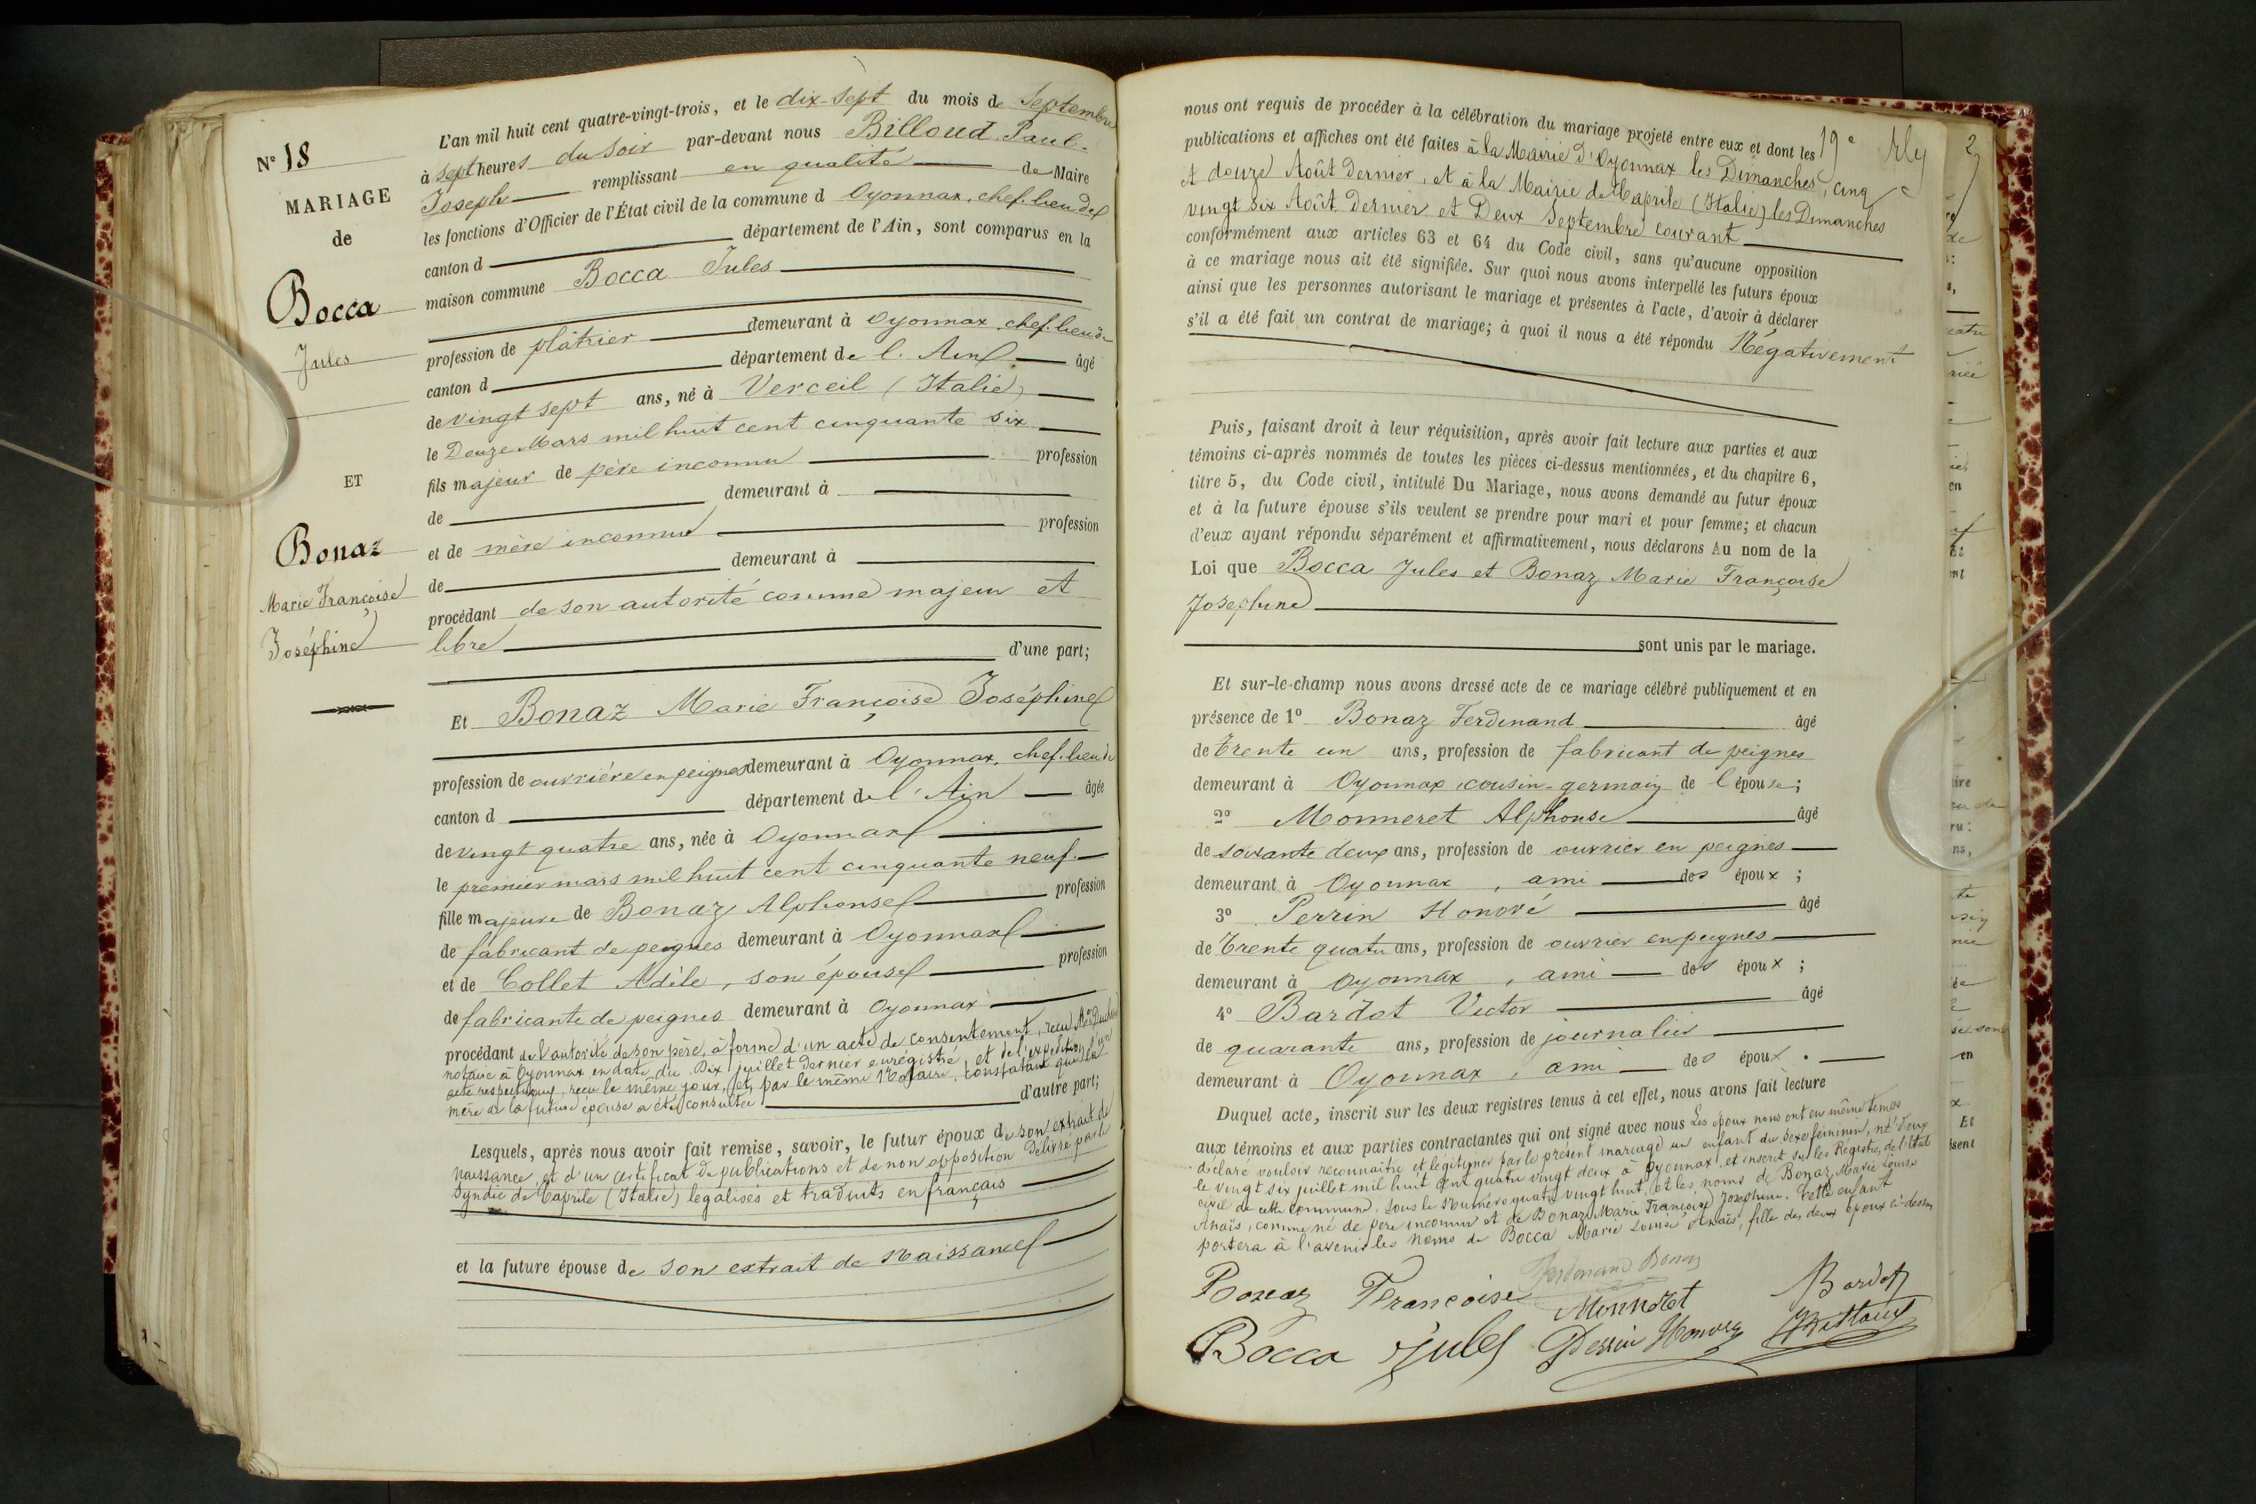 N° 18
MARIAGE
de
Bocca
Jules
ET
Bonaz
Marie Françoise
Joséphine
L'an mil huit cent quatre-vingt-trois, et le dix-sept du mois de Septembre
à sept heures du soir par-devant nous Billoud Paul
Joseph remplissant en qualité de Maire
les fonctions d'Officier de l'État civil de la commune d Oyonnax, chef-lieu de
canton d département de l'Ain, sont comparus en la
maison commune Bocca Jules
profession de plâtrier demeurant à Oyonnax, chef-lieu de
canton d département de l'Ain âgé
de vingt sept ans, né à Verceil (Italie)
le Douze Mars mil huit cent cinquante six
fils majeur de père inconnu profession
de demeurant à
et de mère inconnue profession
de demeurant à
procédant de son autorité comme majeur et
libre
d'une part;
Et Bonaz Marie Françoise Joséphine
profession de ouvrière en peignes demeurant à Oyonnax, chef-lieu de
canton d département de l'Ain âgée
de vingt quatre ans, née à Oyonnax
le premier mars mil huit cent cinquante neuf
fille majeure de Bonaz Alphonse profession
de fabricant de peignes demeurant à Oyonnax
et de Collet Adèle, son épouse profession
de fabricante de peignes demeurant à Oyonnax
procédant de l'autorité de son père, à forme d'un acte de consentement, reçu Me
notaire à Oyonnax en date du Dix juillet dernier enrégistré, et de l'expédition d'un
acte respectueux, reçu le même jour, et par le même Notaire, constatant que la
mère de la future épouse a été consultée d'autre part;
Lesquels, après nous avoir fait remise, savoir, le futur époux de son extrait de
naissance, et d'un certificat de publications et de non opposition délivré par le
Syndic de Caprile (Italie) légalisés et traduits en français
et la future épouse de son extrait de Naissance
19e
2
nous ont requis de procéder à la célébration du mariage projeté entre eux et dont les
publications et affiches ont été faites à la Mairie d'Oyonnax les Dimanches, cinq
et douze Août dernier, et à la Mairie de Caprile (Italie) les Dimanches
vingt six Août dernier et Deux Septembre courant
conformément aux articles 63 et 64 du Code civil, sans qu'aucune opposition
à ce mariage nous ait été signifiée. Sur quoi nous avons interpellé les futurs époux
ainsi que les personnes autorisant le mariage et présentes à l'acte, d'avoir à déclarer
s'il a été fait un contrat de mariage; à quoi il nous a été répondu Négativement
Puis, faisant droit à leur réquisition, après avoir fait lecture aux parties et aux
témoins ci-après nommés de toutes les pièces ci-dessus mentionnées, et du chapitre 6,
titre 5, du Code civil, intitulé Du Mariage, nous avons demandé au futur époux
et à la future épouse s'ils veulent se prendre pour mari et pour femme; et chacun
d'eux ayant répondu séparément et affirmativement, nous déclarons Au nom de la
Loi que Bocca Jules et Bonaz Marie Françoise
Josephine
sont unis par le mariage.
Et sur-le-champ nous avons dressé acte de ce mariage célébré publiquement et en
présence de 1° Bonaz Ferdinand âgé
de Trente un ans, profession de fabricant de peignes
demeurant à Oyonnax, cousin-germain de l'épouse;
2° Monneret Alphonse âgé
de soixante deux ans, profession de ouvrier en peignes
demeurant à Oyonnax, ami des époux;
3° Perrin Honoré âgé
de Trente quatre ans, profession de ouvrier en peignes
demeurant à Oyonnax, ami des époux;
4° Bardot Victor âgé
de quarante ans, profession de journalier
demeurant à Oyonnax, ami des époux.
Duquel acte, inscrit sur les deux registres tenus à cet effet, nous avons fait lecture
aux témoins et aux parties contractantes qui ont signé avec nous Les époux nous ont en même temps
déclaré vouloir reconnaitre et légitimer par le présent mariage un enfant du sexe féminin, né d'eux
le vingt six juillet mil huit cent quatre vingt deux à Oyonnax et inscrit sur les Régistres de l'Etat
civil de cette commune, sous le Numéro quatre vingt huit, et les noms de Bonaz Marie Louise
Anaïs, comme né de père inconnu et de Bonaz Marie Françoise Josephine. Cette enfant
portera à l'avenir les noms de Bocca Marie Louise Anaïs, fille des deux époux ci-dessus
Ferdinand Bonaz
Bonaz Françoise Monneret Bardot
Bocca Jules Perrin Honoré Billoud